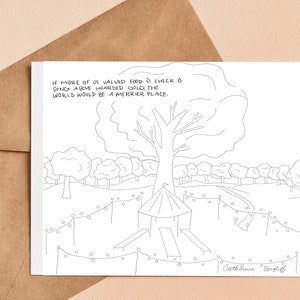 IF MORE OF US VALUED FOOD & CHEER &
SONG ABOVE HOARDED GOLD, THE
WORLD WOULD BE A MERRIER PLACE.
Catherine